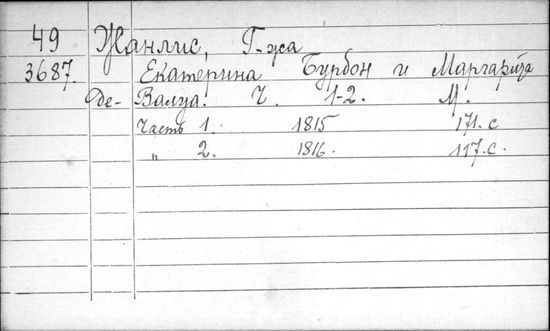 49 Жанлис, Г-жа
3687. Екатерина Бурбон и Маргарита
Де- Валуа. Ч. 1-2. М.
Часть 1. 1815 171. с
„ 2. 1816. 117. с.